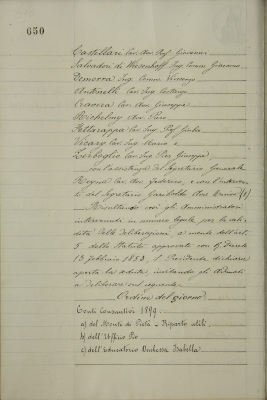 650
Castellari Cav. Avv. Prof. Giovanni
Salvadori di Wiesenhoff Ing. Comm. Giacomo
Zimorra Ing. Comm. Vincenzo
Antonelli Cav. Ing. Costanzo
Craveia Cav. Avv. Giuseppe
Michelini Avv. Piero
Pettarappa Cav. Ing. Prof. Giulio
Vicary Cav. Ing. Mario e
Zerboglio Cav. Ing. Pier Giuseppe
coll'assistenza del Segretario Generale
Cav. Avv. Federico, e con l'intervento
del Segretario Garibaldi Avv. Enrico
Risultando così gli Amministratori
intervenuti in numero legale per la vali-
dità delle deliberazioni, a mente dell'art.
5 dello Statuto approvato con R. Decreto
13 febbraio 1853, il Presidente dichiara
aperta la seduta, invitando gli Adunati
a deliberare sul seguente
Ordine del giorno
Conti Consuntivi 1899.
a) del Monte di Pietà - Riparto utili;
b) dell'Ufficio Pio
c) dell'Educatorio Duchessa Isabella